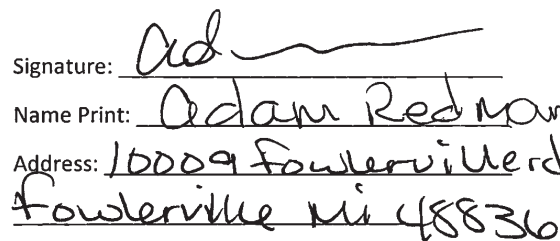 Signature: ad
Name Print: adam Redman
Address: 10009 fowlerville rd
fowlerville Mi 48836